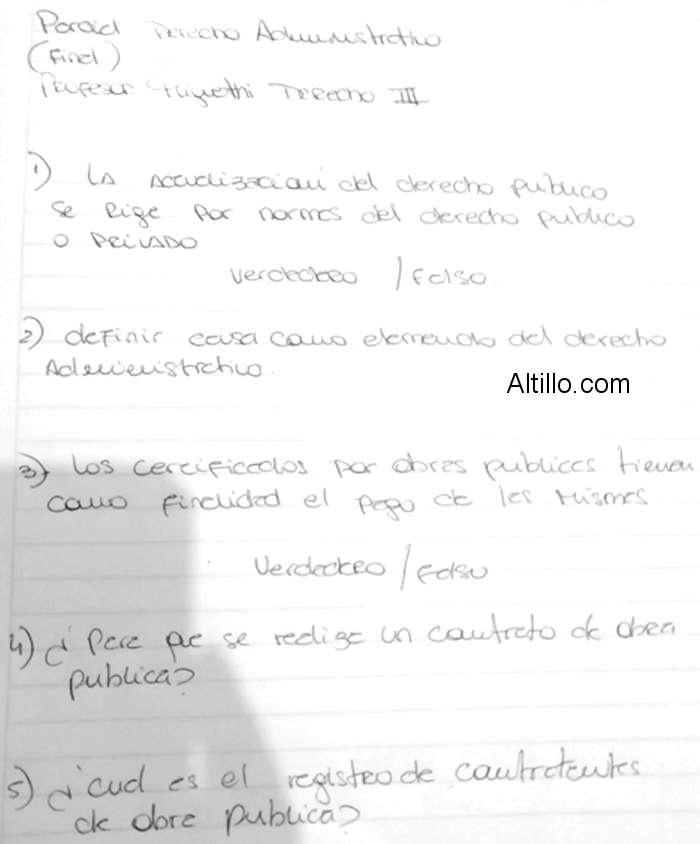 Parcial Derecho Administrativo
(Final)
Profesor Derecho III
1) La actualización del derecho publico
se rige por normas del derecho publico
o privado
Verdadero / Falso.
2) definir causa como elemento del derecho
Administrativo.
Altillo.com
3) Los certificados por obras publicas tienen
como finalidad el pago de las mismas
Verdadero / Falso
4) ¿Para que se realiza un contrato de obra
publica?
5) ¿cual es el registro de contratantes
de obra publica?